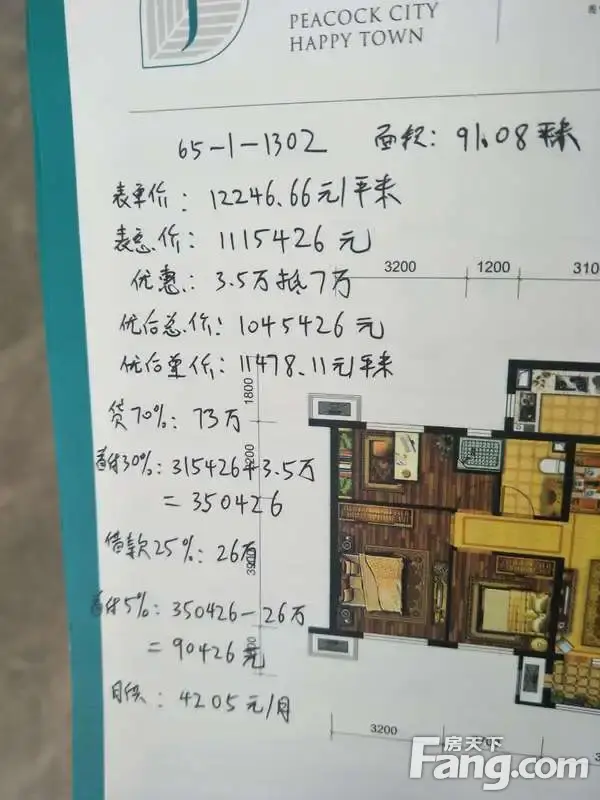 PEACOCK CITY
HAPPY TOWN
65-1-1302 面积: 91.08平米
表单价: 12246.66元/平米
表总价: 1115426元
优惠: 3.5万抵7万
优后总价: 1045426元
优后单价: 11478.11元/平米
贷70%: 73万
首付30%: 315426+3.5万
=350426
借款25%: 26万
首付5%: 350426-26万
=90426元
月供: 4205元/月
3200
1200
310
1800
3200
房天下
Fang.com